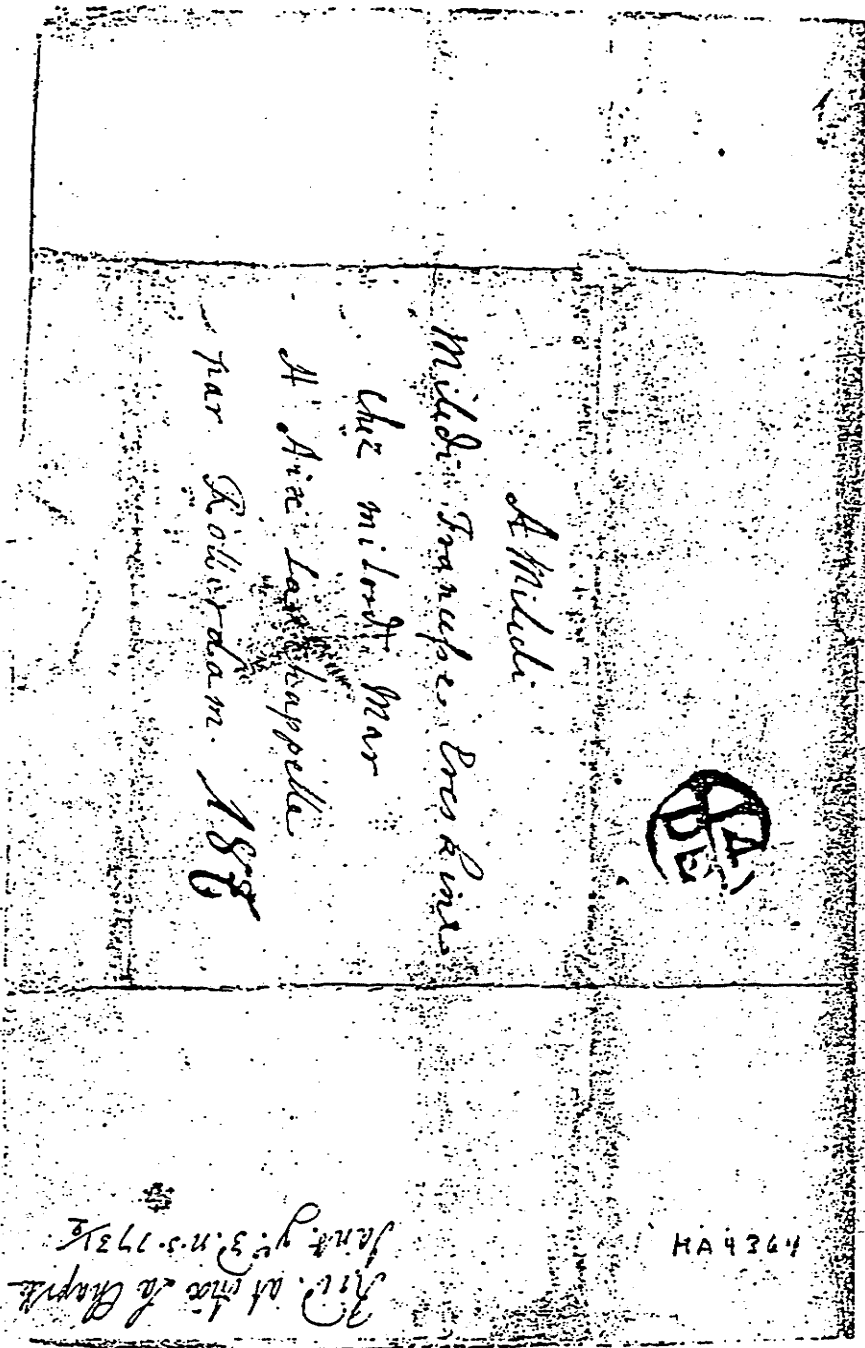 A Miledi
Miledi Francesse Ereskine
Chez milord Mar
A Aix La Chappelle
par Roterdam. 18
HA 4364
Recd. at Aix La Chapelle
Janr. ye. 3d. n.s. 173